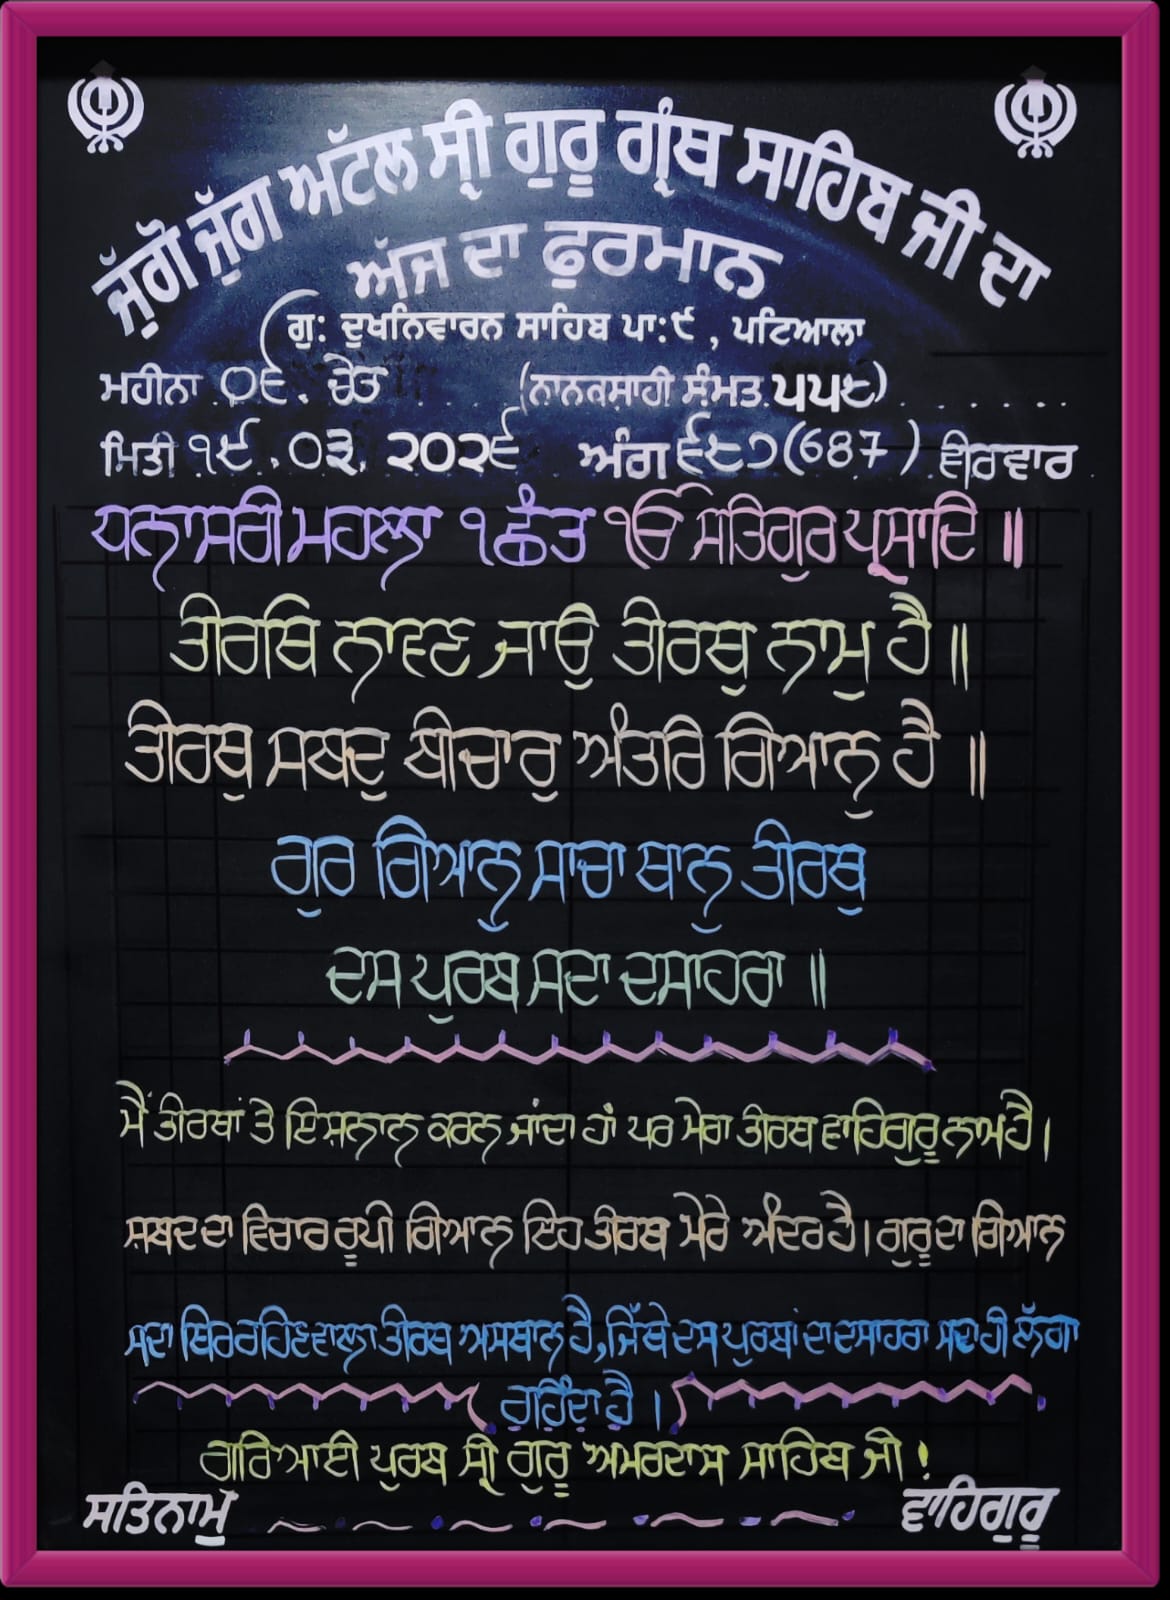 ਜੁੱਗੋ ਜੁੱਗ ਅਟੱਲ ਸ੍ਰੀ ਗੁਰੂ ਗ੍ਰੰਥ ਸਾਹਿਬ ਜੀ ਦਾ
ਅੱਜ ਦਾ ਫੁਰਮਾਨ
ਗੁ: ਦੁਖਨਿਵਾਰਨ ਸਾਹਿਬ ਪਾ:੯, ਪਟਿਆਲਾ
ਮਹੀਨਾ ੦੬. ਚੇਤ (ਨਾਨਕਸ਼ਾਹੀ ਸੰਮਤ ੫੫੮)
ਮਿਤੀ ੧੯.੦੩.੨੦੨੬ ਅੰਗ ੬੮੭(687) ਵੀਰਵਾਰ
ਧਨਾਸਰੀ ਮਹਲਾ ੧ ਛੰਤ ੴ ਸਤਿਗੁਰ ਪ੍ਰਸਾਦਿ ॥
ਤੀਰਥਿ ਨਾਵਣ ਜਾਉ ਤੀਰਥੁ ਨਾਮੁ ਹੈ ॥
ਤੀਰਥੁ ਸਬਦੁ ਬੀਚਾਰੁ ਅੰਤਰਿ ਗਿਆਨੁ ਹੈ ॥
ਗੁਰ ਗਿਆਨੁ ਸਾਚਾ ਥਾਨੁ ਤੀਰਥੁ
ਦਸ ਪੁਰਬ ਸਦਾ ਦਸਾਹਰਾ ॥
ਮੈਂ ਤੀਰਥਾਂ ਤੇ ਇਸ਼ਨਾਨ ਕਰਨ ਜਾਂਦਾ ਹਾਂ ਪਰ ਮੇਰਾ ਤੀਰਥ ਵਾਹਿਗੁਰੂ ਨਾਮ ਹੈ।
ਸ਼ਬਦ ਦਾ ਵਿਚਾਰ ਰੂਪੀ ਗਿਆਨ ਇਹ ਤੀਰਥ ਮੇਰੇ ਅੰਦਰ ਹੈ। ਗੁਰੂ ਦਾ ਗਿਆਨ
ਸਦਾ ਥਿਰ ਰਹਿਣ ਵਾਲਾ ਤੀਰਥ ਅਸਥਾਨ ਹੈ, ਜਿੱਥੇ ਦਸ ਪੁਰਬਾਂ ਦਾ ਦਸਾਹਰਾ ਸਦਾ ਹੀ ਲੱਗਾ
ਰਹਿੰਦਾ ਹੈ।
ਗੁਰਿਆਈ ਪੁਰਬ ਸ੍ਰੀ ਗੁਰੂ ਅਮਰਦਾਸ ਸਾਹਿਬ ਜੀ!
ਸਤਿਨਾਮੁ ਵਾਹਿਗੁਰੂ